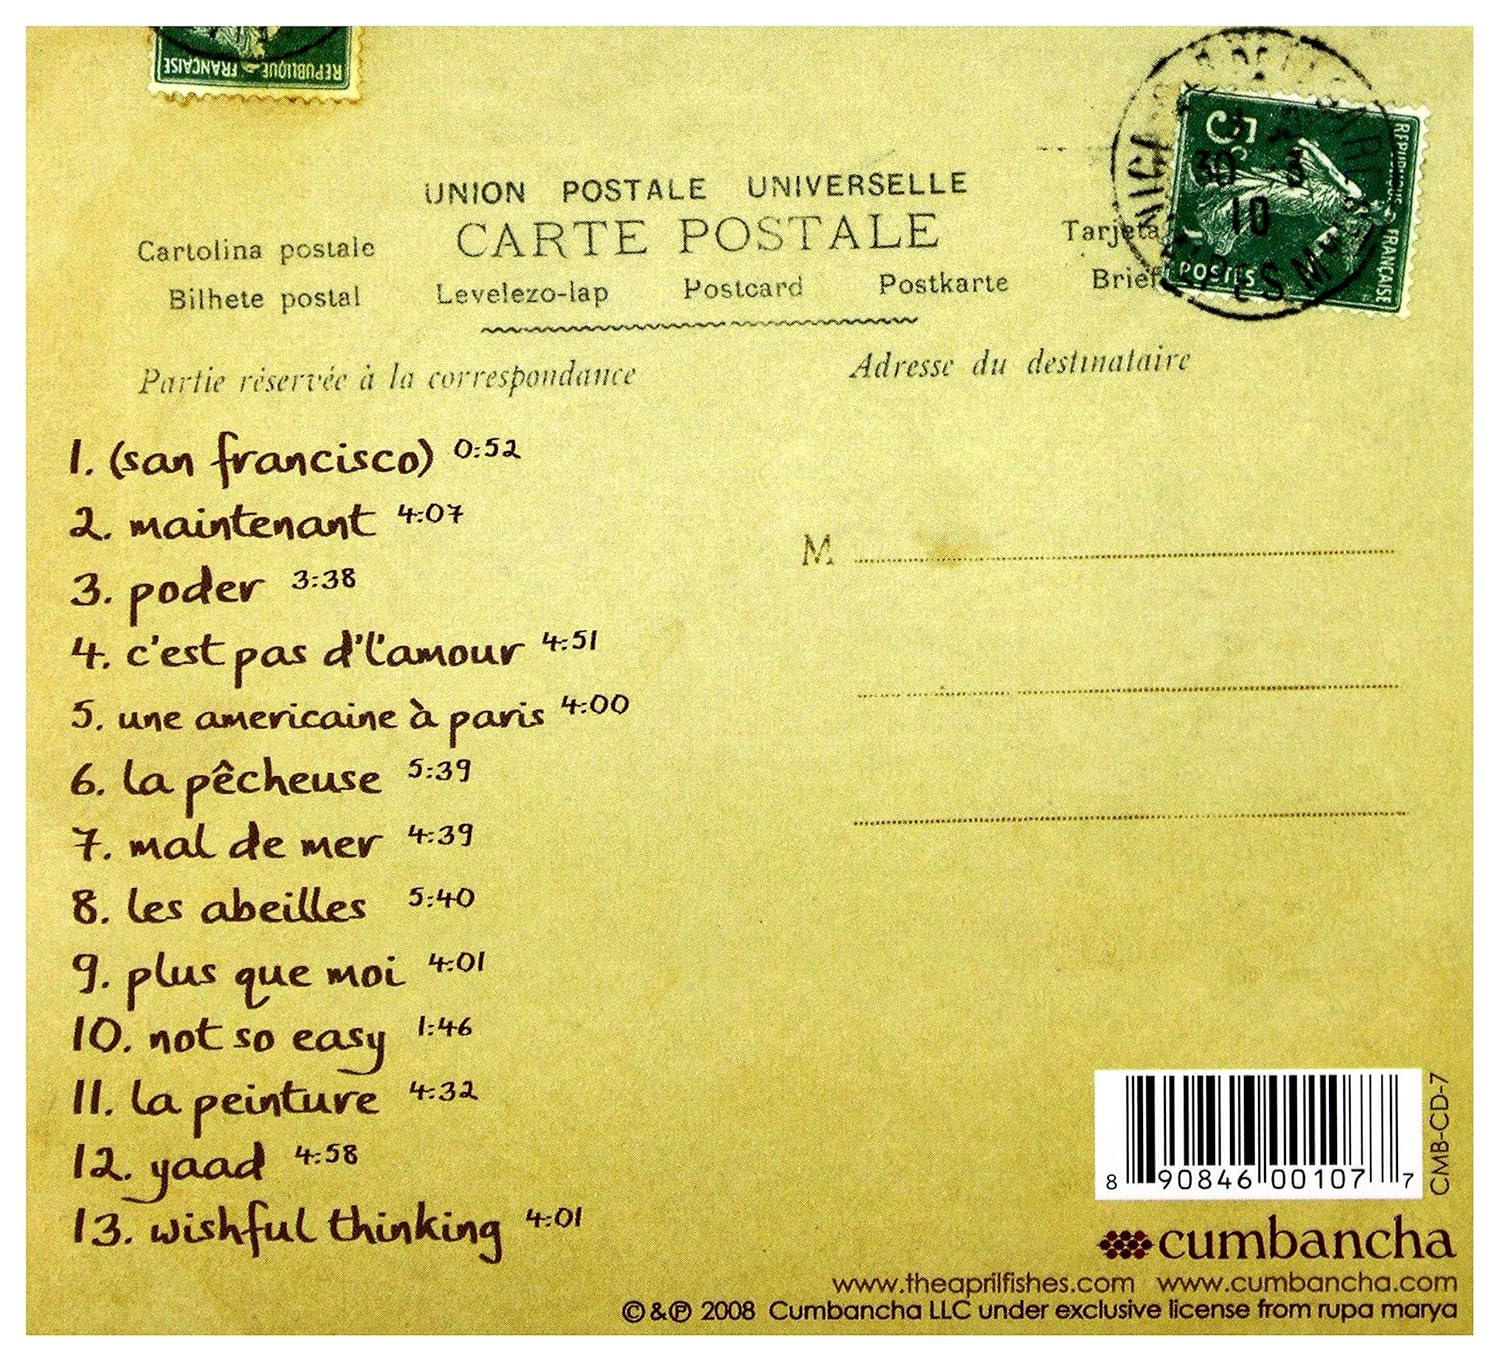 REPUBLIQUE FRANÇAISE
UNION POSTALE UNIVERSELLE
CARTE POSTALE
Cartolina postale
Tarjeta
Bilhete postal Levelezo-lap Postcard Postkarte Brief
5
30 3
10
POSTES
REPUBLIQUE FRANÇAISE
Partie réservée à la correspondance
Adresse du destinataire
1. (san francisco) 0:52
2. maintenant 4:07
3. poder 3:38
4. c'est pas d'l'amour 4:51
5. une americaine à paris 4:00
6. la pêcheuse 5:39
7. mal de mer 4:39
8. les abeilles 5:40
9. plus que moi 4:01
10. not so easy 1:46
11. la peinture 4:32
12. yaad 4:58
13. wishful thinking 4:01
M
8 90846 00107 7
CMB-CD-7
cumbancha
www.theaprilfishes.com www.cumbancha.com
©&℗ 2008 Cumbancha LLC under exclusive license from rupa marya